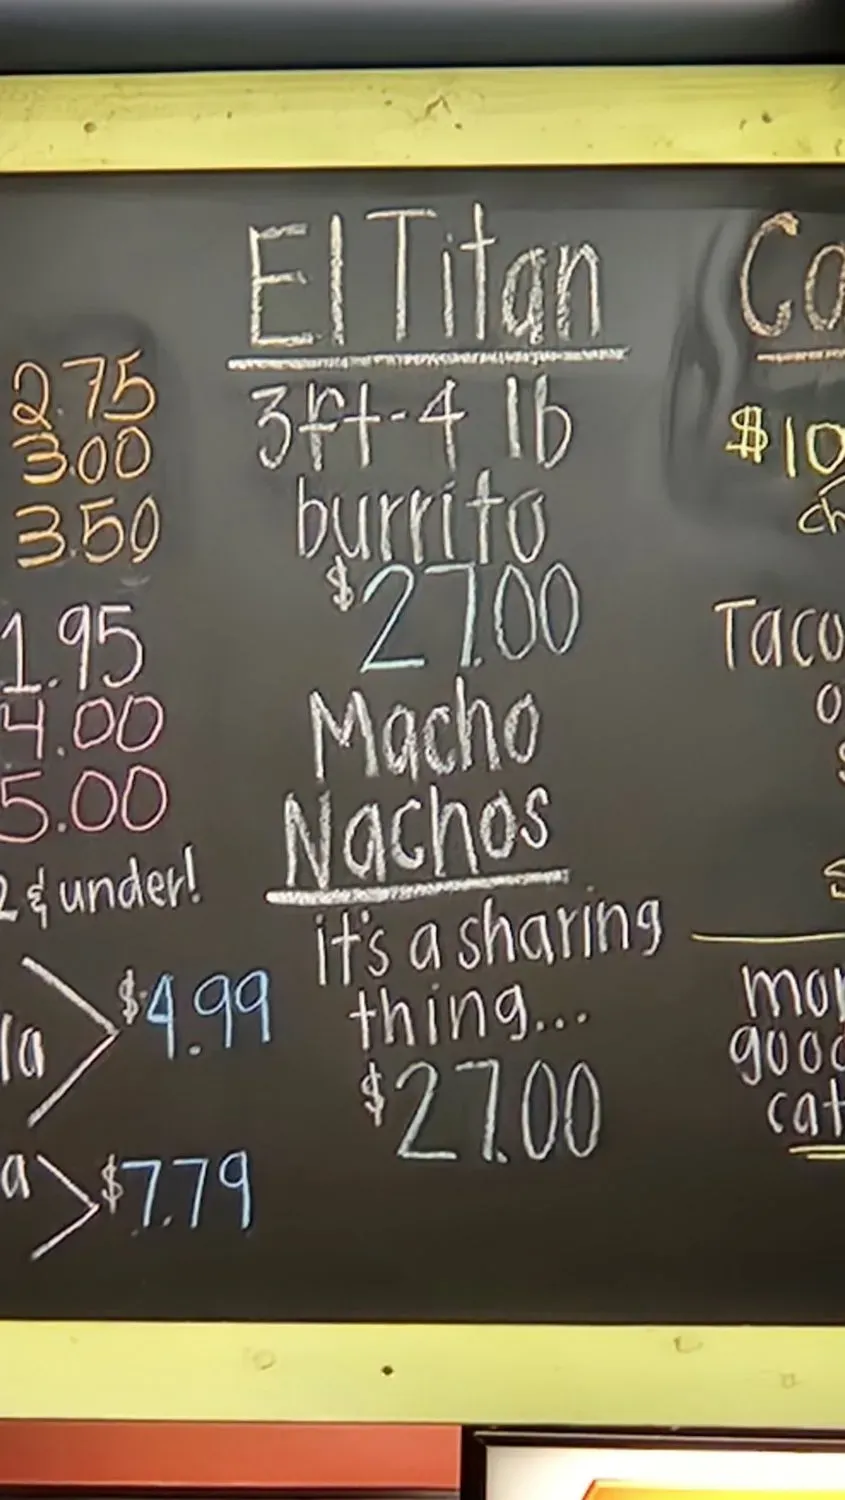 2.75
3.00
3.50
1.95
4.00
5.00
2 & under!
la
$4.99
a
$7.79
El Titan
3ft-4 lb
burrito
$27.00
Macho
Nachos
it's a sharing
thing...
$27.00
Co
$10
ch
Taco
o
mor
good
cat